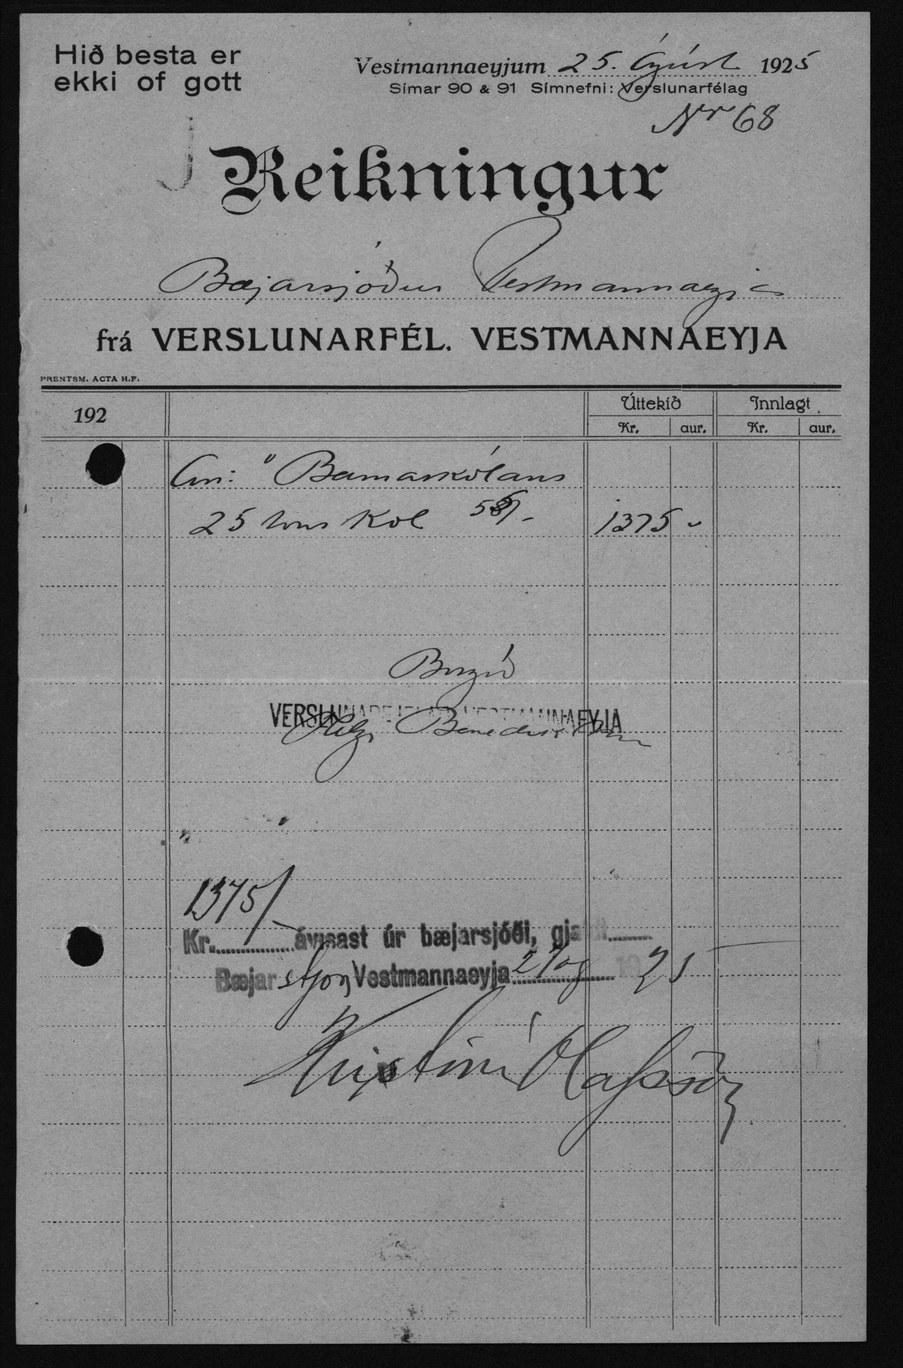 Hið besta er
ekki of gott
Vestmannaeyjum 25. Ágúst 1925
Símar 90 & 91 Símnefni: Verslunarfélag
Nr 68
Reikningur
Bæjarsjóður Vestmannaeyja
frá VERSLUNARFÉL. VESTMANNAEYJA
PRENTSM. ACTA H.F.
192 Úttekið Innlagt
Kr. aur. Kr. aur.
Barnaskólans
25 tons Kol 55/- 1375 -
Borgið
VERSLUNARFJELAG VESTMANNAEYJA
Helgi Benediktsson
1375/-
Kr. ávísast úr bæjarsjóði,
Bæjarstjórn Vestmannaeyja 1925
Kristinn Ólafsson